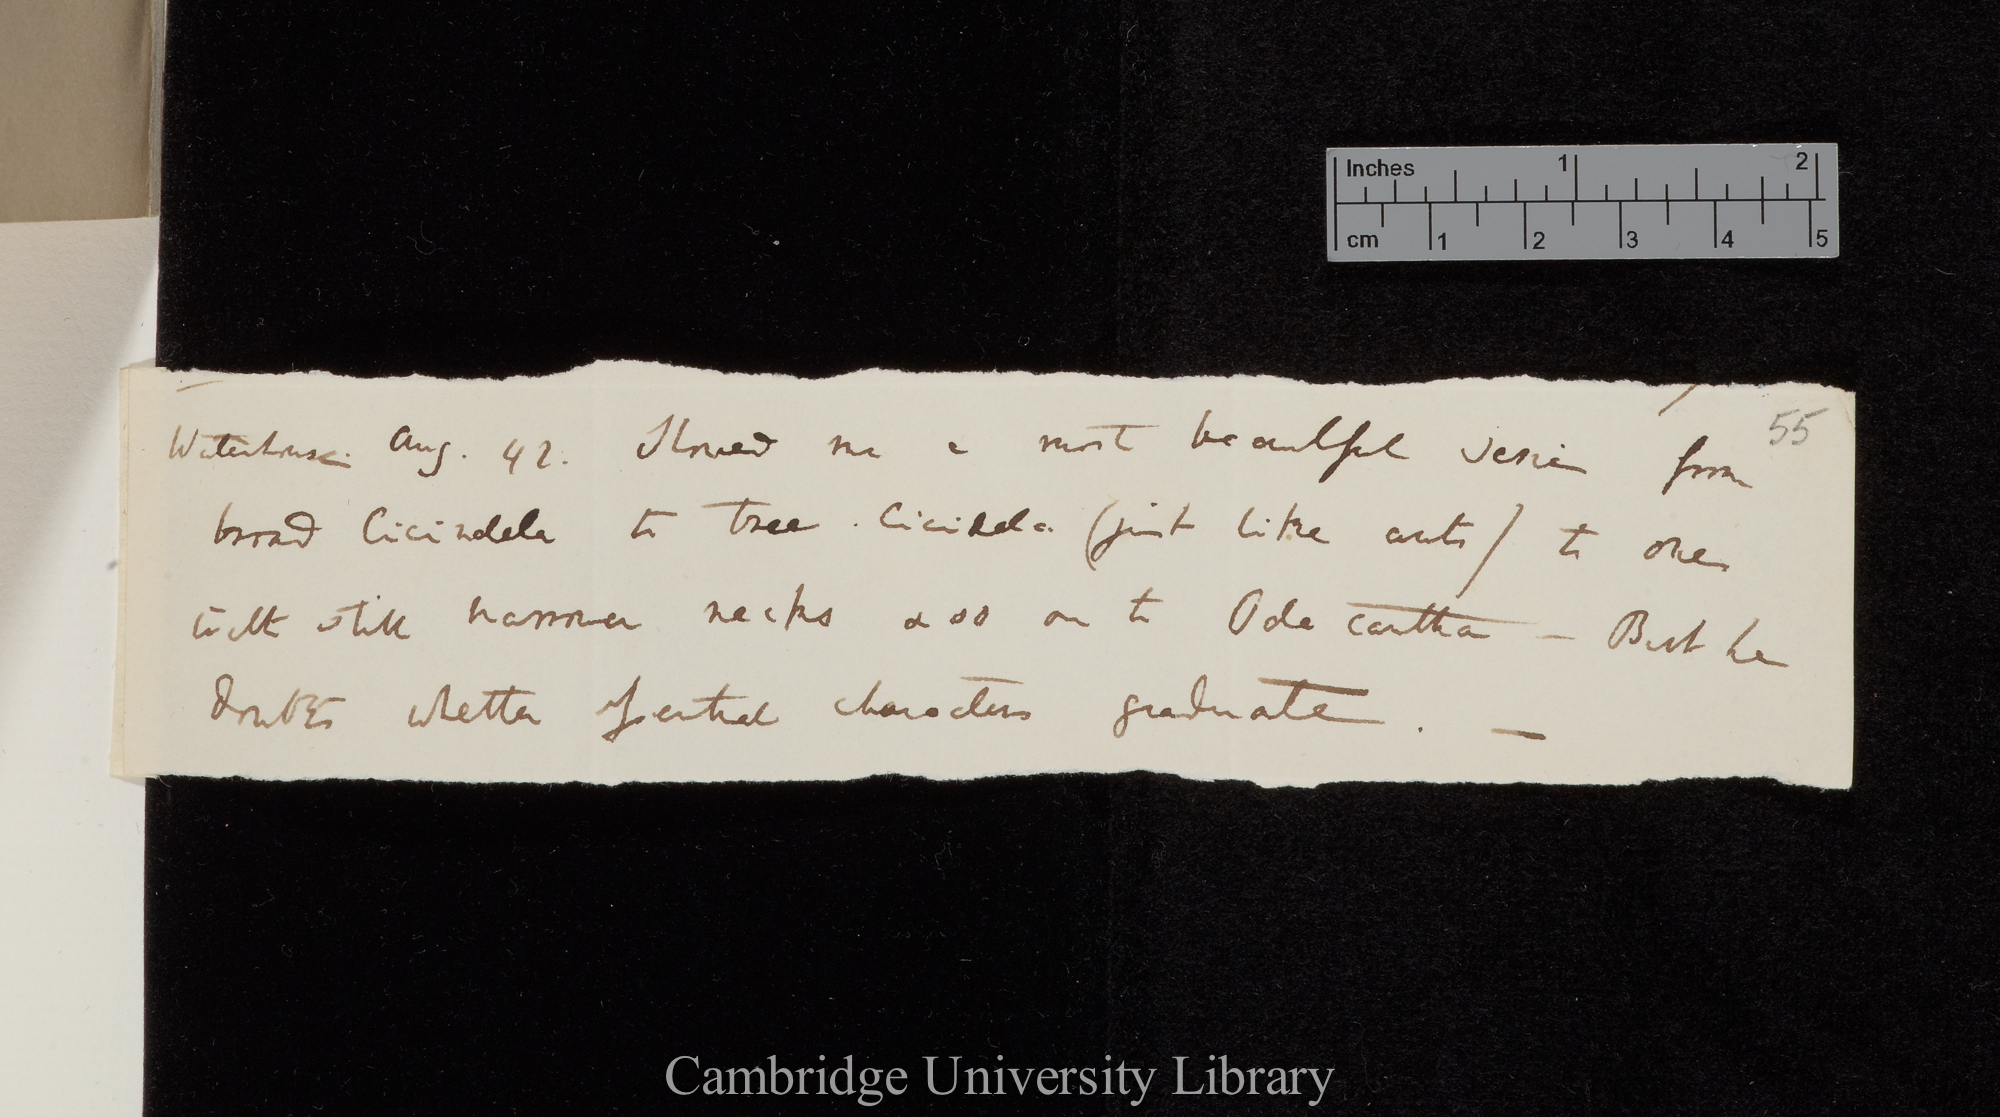 Inches 1 2
cm 1 2 3 4 5
55
Waterhouse Aug. 42. Showed me a most beautiful series from
broad Cicindela to tree Cicindela (just like ants) to ones
with still narrower necks & so on to Odacantha — But he
doubts whether essential characters graduate. —
Cambridge University Library